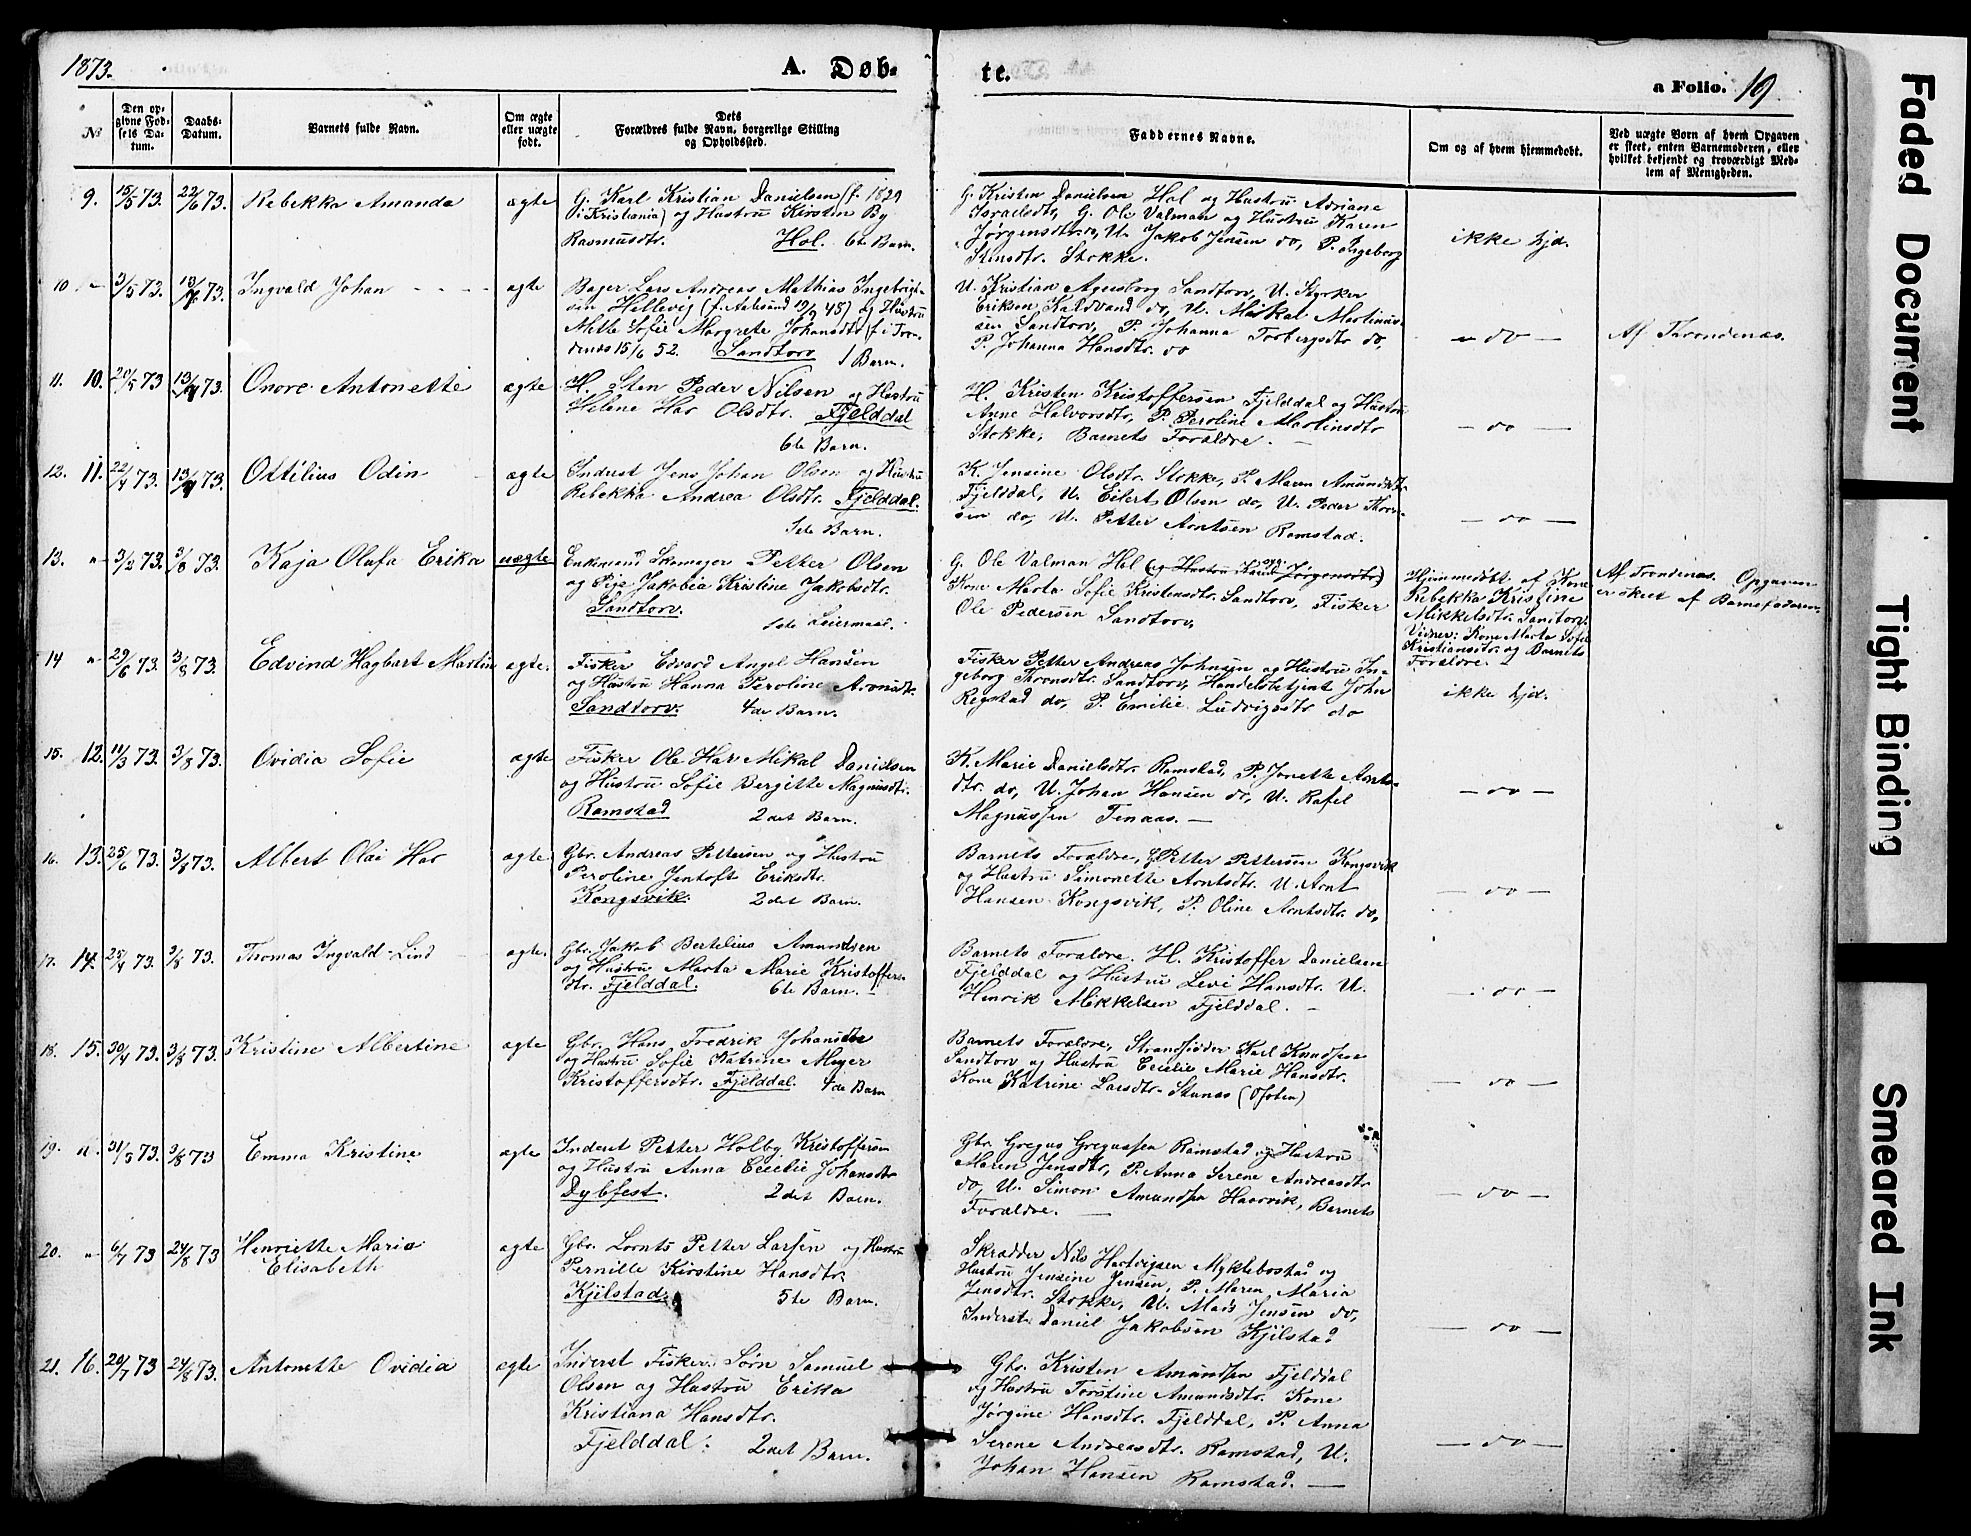 1873.
A. Døb-
te.
a Folio. 19
№
Den op-
givne Fød-
sels Da-
tum.
Daabs-
Datum.
Barnets fulde Navn.
Om ægte
eller uægte
født.
Dets
Forældres fulde Navn, borgerlige Stilling
og Opholdssted.
Faddernes Navne.
Om og af hvem hjemmedøbt.
Ved uægte Børn af hvem Opgaven
er skeet, enten Barnemoderen, eller
hvilket bekjendt og troværdigt Med-
lem af Menigheden.
9. 15/5 73. 22/6 73. Rebekka Amanda ægte
G. Karl Kristian Danielsen (f. 1829
i Kristiania) og Hustru Kirsten By
Rasmusdtr. Hol. 6te Barn.
G. Kristen Danielsen Hol og Hustru Adriane
Israelsdtr, G. Ole Valman og Hustru Karen
Jørgensdtr do, U. Jakob Jensen do, P. Ingeborg
Stensdtr. Stokke.
ikke hjd.
10 " 3/5 73. 13/7 73. Ingvald Johan ægte
Bager Lars Andreas Mathias Ingebrigt-
sen Hellevig (f. Aalesund 19/9 45) og Hustru
Mette Sofie Margrete Johansdtr (f. i Tron-
denes 15/6 52. Sandtorv 1 Barn.
U. Kristian Agersborg Sandtorv, U. Styrker
Eriksen Kaldvand do, U. Mikal Martinus-
sen Sandtorv, P. Johanna Torbergsdtr do,
P. Johanna Hansdtr. do
— do —
Af Throndenæs.
11. 10. 20/5 73 13/7 73. Onore Antonette ægte
H. Sten Peder Nilsen og Hustru
Helene Har Olsdtr. Fjelddal
6te Barn.
H. Kristen Kristoffersen Fjelddal og Hustru
Anne Halvorsdtr, P. Peroline Martinsdtr
Stokke, Barnets Forældre. —
— do —
12. 11. 22/4 73. 13/7 73. Ottilius Odin ægte
Inderst Jens Johan Olsen og Hustru
Rebekka Andrea Olsdtr. Fjelddal.
1ste Barn.
K. Jensine Olsdtr. Stokke, P. Maren Amundsdtr
Fjelddal, U. Eilert Olsen do, U. Peder Thor-
sen do, U. Petter Arntsen Ramstad.
— do —
13. " 3/2 73. 3/8 73. Kaja Olufa Erika uægte
Enkemand Skomager Petter Olsen
og Pige Jakobia Kristine Jakobsdtr.
Sandtorv. 1ste Leiermaal.
G. Ole Valman Hol (og Hustru Karen Jørgensdtr)
Kone Marta Sofie Kristensdtr. Sandtorv, Fisker
Ole Pedersen Sandtorv,
Hjemmedøbt af Kone
Rebekka Kristine
Mikkelsdtr. Sandtorv.
Vidner: Kone Marta Sofie
Kristiansdtr. og Barnets
Forældre.
Af Trondenæs. Opgaven
er skeet af Barnefaderen.
14 " 29/6 73. 3/8 73. Edvind Hagbart Martin ægte.
Fisker Edvard Angel Hansen
og Hustru Hanna Peroline Aronsdtr.
Sandtorv. 4de Barn.
Fisker Petter Andreas Johnsen og Hustru In-
geborg Thronsdtr. Sandtorv, Handelsbetjent John
Regstad do, P. Emilie Ludvigsdtr do
ikke hjd.
15. 12. 11/3 73. 3/8 73. Ovidia Sofie ægte
Fisker Ole Har Mikal Danielsen
og Hustru Sofie Bergitte Magnusdtr.
Ramstad 2det Barn.
K. Marie Danielsdtr. Ramstad, P. Jonette Arnts-
dtr. do, U. Johan Hansen do, U. Rafel
Magnussen Tenaas. —
— do —
16. 13. 25/6 73. 3/8 73. Albert Olai Har ægte.
Gbr. Andreas Pettersen og Hustru
Peroline Jentoft Eriksdtr.
Kongsvik. 2det Barn.
Barnets Forældre, G. Petter Pettersen Kongsvik
og Hustru Simonette Arntsdtr. U. Arnt
Hansen Kongsvik, P. Oline Arntsdtr. do,
— do —
17. 14. 25/4 73. 3/8 73. Thomas Ingvald Lind ægte.
Gbr. Jakob Bertelius Amundsen
og Hustru Marta Marie Kristoffers-
dtr. Fjelddal. 6te Barn. —
Barnets Forældre. H. Kristoffer Danielsen
Fjelddal og Hustru Levi Hansdtr. U.
Henrik Mikkelsen Fjelddal. —
— do —
18. 15. 30/4 73. 3/8 73. Kristine Albertine ægte
Gbr. Hans Fredrik Johansen
og Hustru Sofie Katrine Meyer
Kristoffersdtr. Fjelddal. 4de Barn
Barnets Forældre, Strandsidder Karl Knudsen
Sandtorv og Hustru Cecilie Marie Hansdtr.
Kone Katrine Larsdtr. Stenæs (Ofoten)
— do —
19. " 31/5 73. 3/8 73 Emma Kristine ægte
Inderst Petter Holby Kristoffersen
og Hustru Anna Cecilie Johansdtr
Dybfest. 2det Barn.
Gbr. Gregus Gregussen Ramstad og Hustru
Maren Jensdtr, P. Anna Serene Andreasdtr
do, U. Simon Amundsen Haarvik, Barnets
Forældre. —
— do —
20. " 6/7 73 24/8 73 Henriette Maria
Elisabeth ægte
Gbr. Lornts Petter Larsen og Hustru
Pernille Kirstine Hansdtr.
Kjilstad. 5te Barn.
Skrædder Nils Hartvigsen Myklebostad og
Hustru Jensine Jensen, P. Maren Maria
Jensdtr. Stokke, U. Mads Jensen do,
Inderst Daniel Jakobsen Kjilstad
— do —
21. 16. 20/7 73 24/8 73. Antonette Ovidia ægte
Inderst Fisker Sørn Samuel
Olsen og Hustru Erikka
Kristiana Hansdtr.
Fjelddal. 2det Barn.
Gbr. Kristen Amundsen Fjelddal
og Hustru Torstine Amundsdtr. Kone
Jørgine Hansdtr. Fjelddal, P. Anna
Serene Andreasdtr. Ramstad, U.
Johan Hansen Ramstad. —
— do —
Faded Document
Tight Binding
Smeared Ink